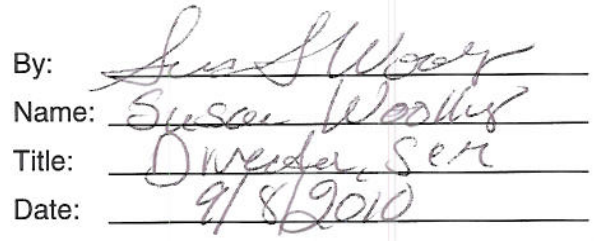 By: Sus S Woolley
Name: Susan Woolley
Title: Director, SEM
Date: 9/8/2010